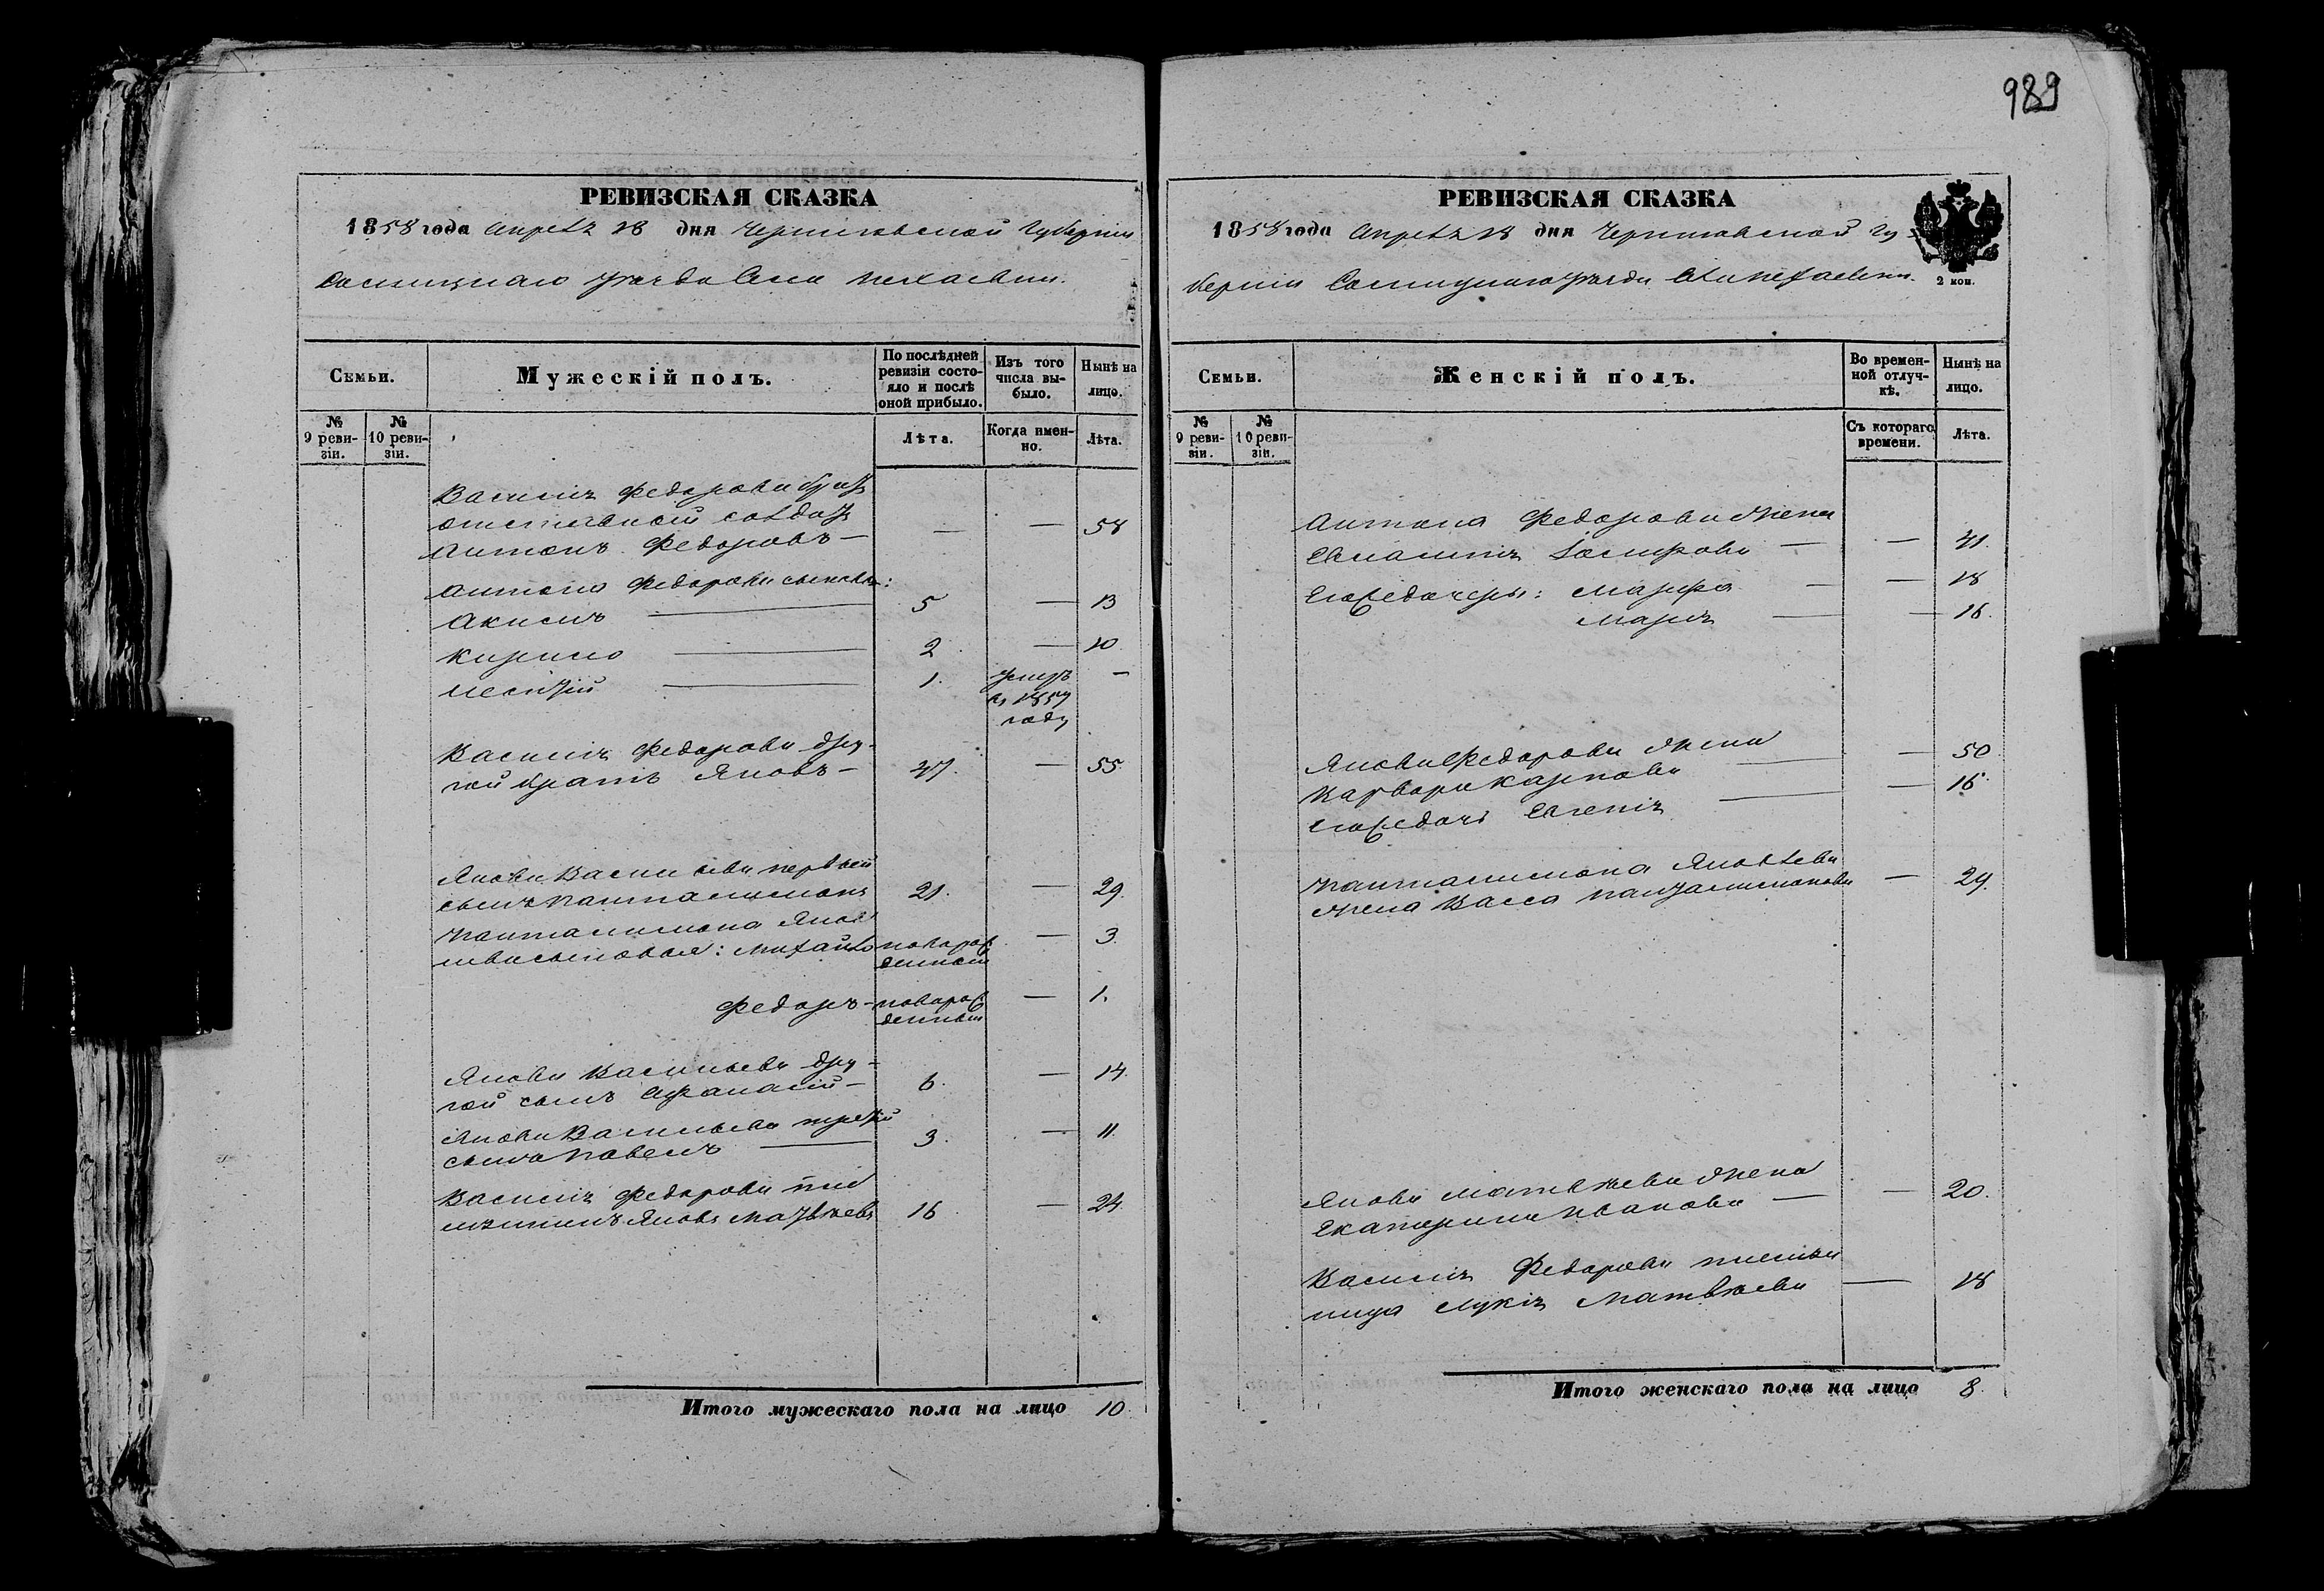 989
РЕВИЗСКАЯ СКАЗКА
1858 года Апреля 28 дня Черниговской Губернiи
Сосницкаго уѣзда Села Пекаевки.
Семьи.
Мужескiй полъ.
По послѣдней ревизiи состояло и послѣ оной прибыло.
Изъ того числа выбыло.
Нынѣ на лицо.
№ 9 ревизiи.
№ 10 ревизiи.
Лѣта.
Когда именно.
Лѣта.
Василiя Федорова братъ
отставной солдатъ
Антонъ Федоровъ — — — 58
Антона Федорова сыновья:
Акимъ — 5 — 13
Кирило — 2 — 10
1. умеръ
въ 1857
году —
Василiя Федорова дру-
гой братъ Яковъ — 47. — 55.
Якова Васильева первый
сынъ Панталимонъ 21. — 29.
Панталимона Яков
лева сыновья: Михайло новорож
денный — 3.
Федоръ — новорож
денный — 1.
Якова Васильева дру-
гой сынъ Афанасiй — 6. — 14.
Якова Васильева третiй
сынъ Павелъ — 3. — 11.
Василiя Федорова пле
мянникъ Яковъ Матвѣевъ 16 — 24.
Итого мужескаго пола на лицо 10.
РЕВИЗСКАЯ СКАЗКА
1858 года Апреля 28 дня Черниговской Гу-
бернiи Сосницкаго уѣзда Села Пекаевки.
2 коп.
Семьи.
Женскiй полъ.
Во временной отлучкѣ.
Нынѣ на лицо.
№ 9 ревизiи.
№ 10 ревизiи.
Съ котораго времени.
Лѣта.
Антона Федорова жена
Осипова — — 41.
Его же дочери: Марфа — — 18
Марiя — — 16.
Якова Федорова жена
Варвара Карпова — — 50
Его же дочь Евгенiя — — 16.
Панталимона Яковлева
жена Васса Панталимонова — 29.
Якова Матвѣева жена
Екатерина Иванова — — 20.
Василiя Федорова племян
ница Лукiя Матвѣева — 18
Итого женскаго пола на лицо 8.